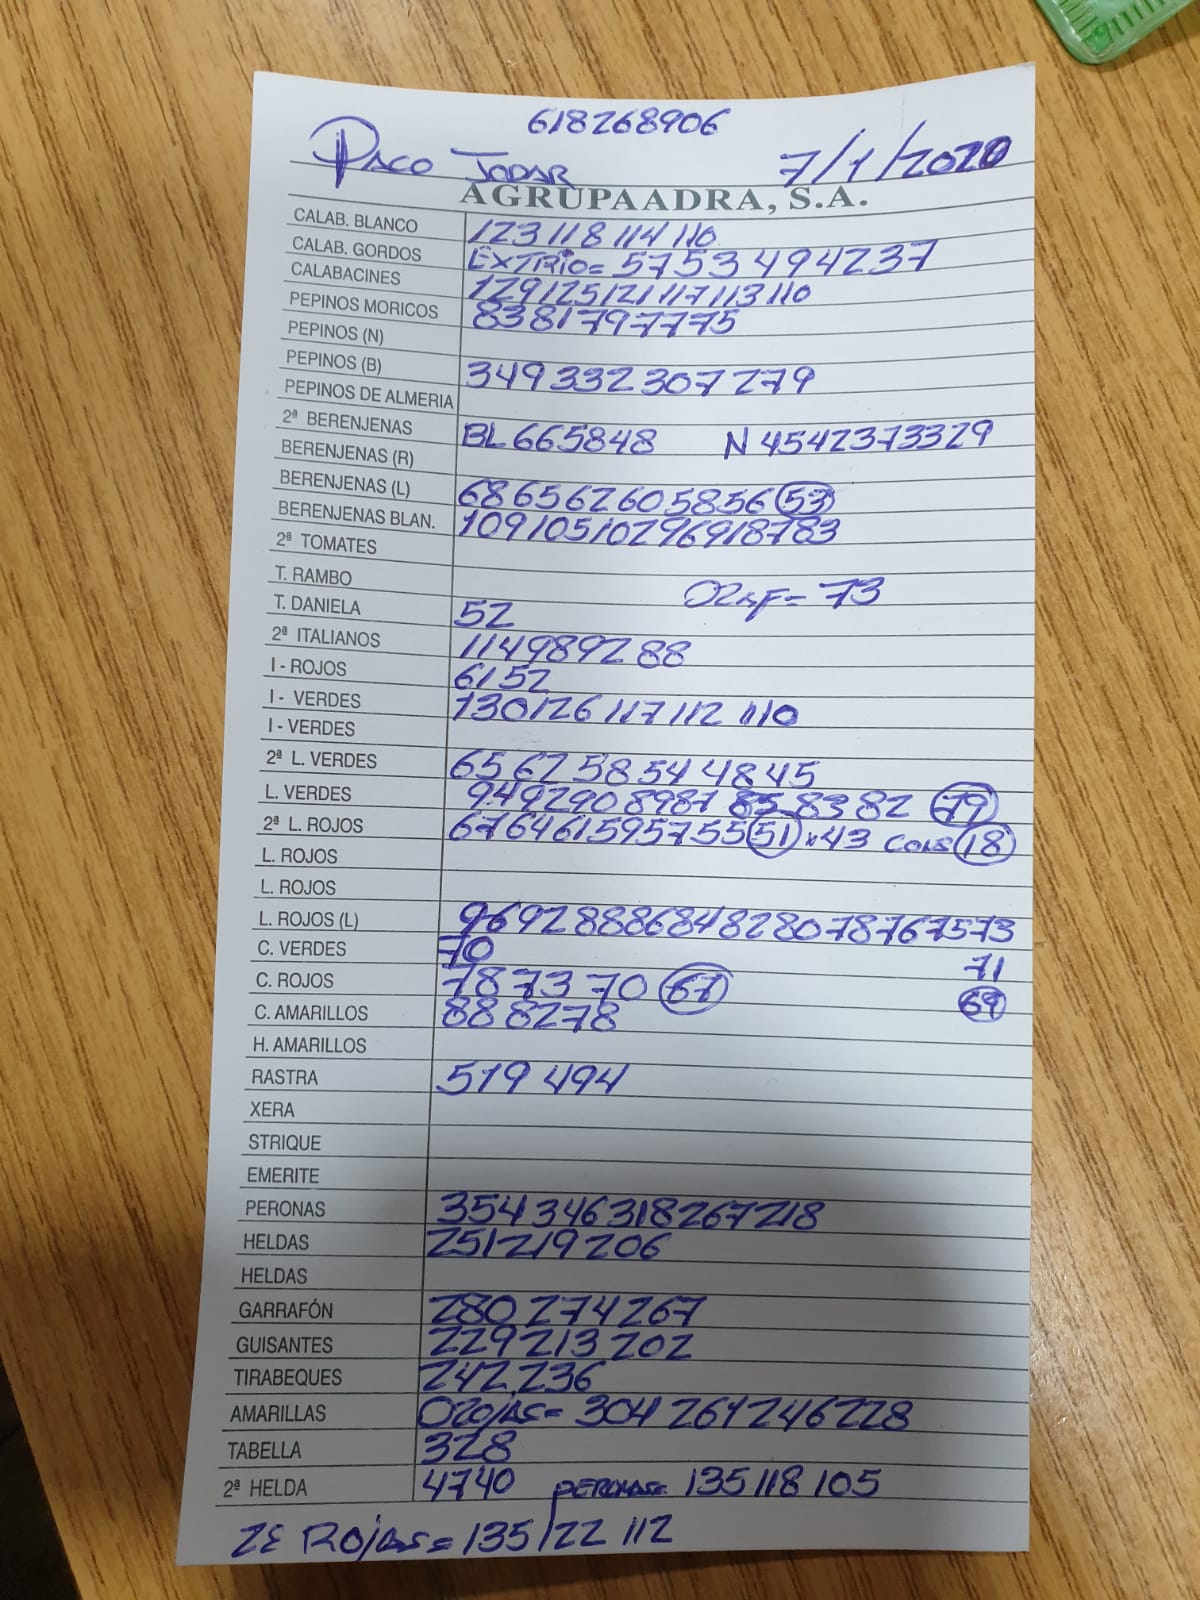 618268906
PACO JODAR 7/1/2020
AGRUPAADRA, S.A.
CALAB. BLANCO 123 118 114 110
CALAB. GORDOS EXTRIO= 57 53 49 42 37
CALABACINES 129 125 121 117 113 110
PEPINOS MORICOS 83 81 79 77 75
PEPINOS (N)
PEPINOS (B) 349 332 307 279
PEPINOS DE ALMERIA
2ª BERENJENAS BL 66 58 48 N 45 42 37 33 29
BERENJENAS (R)
BERENJENAS (L) 68 65 62 60 58 56 53
BERENJENAS BLAN. 109 105 102 96 91 87 83
2ª TOMATES
T. RAMBO = 73
T. DANIELA 52
2ª ITALIANOS 114 98 92 88
I - ROJOS 61 52
I - VERDES 130 126 117 112 110
I - VERDES
2ª L. VERDES 65 62 58 54 48 45
L. VERDES 94 92 90 89 87 85 83 82 79
2ª L. ROJOS 67 64 61 59 57 55 51 43 18
L. ROJOS
L. ROJOS
L. ROJOS (L) 96 92 88 86 84 82 80 78 76 75 73
C. VERDES 70 71
C. ROJOS 78 73 70 67 69
C. AMARILLOS 88 82 78
H. AMARILLOS
RASTRA 519 494
XERA
STRIQUE
EMERITE
PERONAS 354 346 318 267 218
HELDAS 251 219 206
HELDAS
GARRAFÓN 280 274 267
GUISANTES 229 213 202
TIRABEQUES 242 236
AMARILLAS = 304 261 246 228
TABELLA 328
2ª HELDA 47 40 PERONAS= 135 118 105
ROJAS= 135 122 112